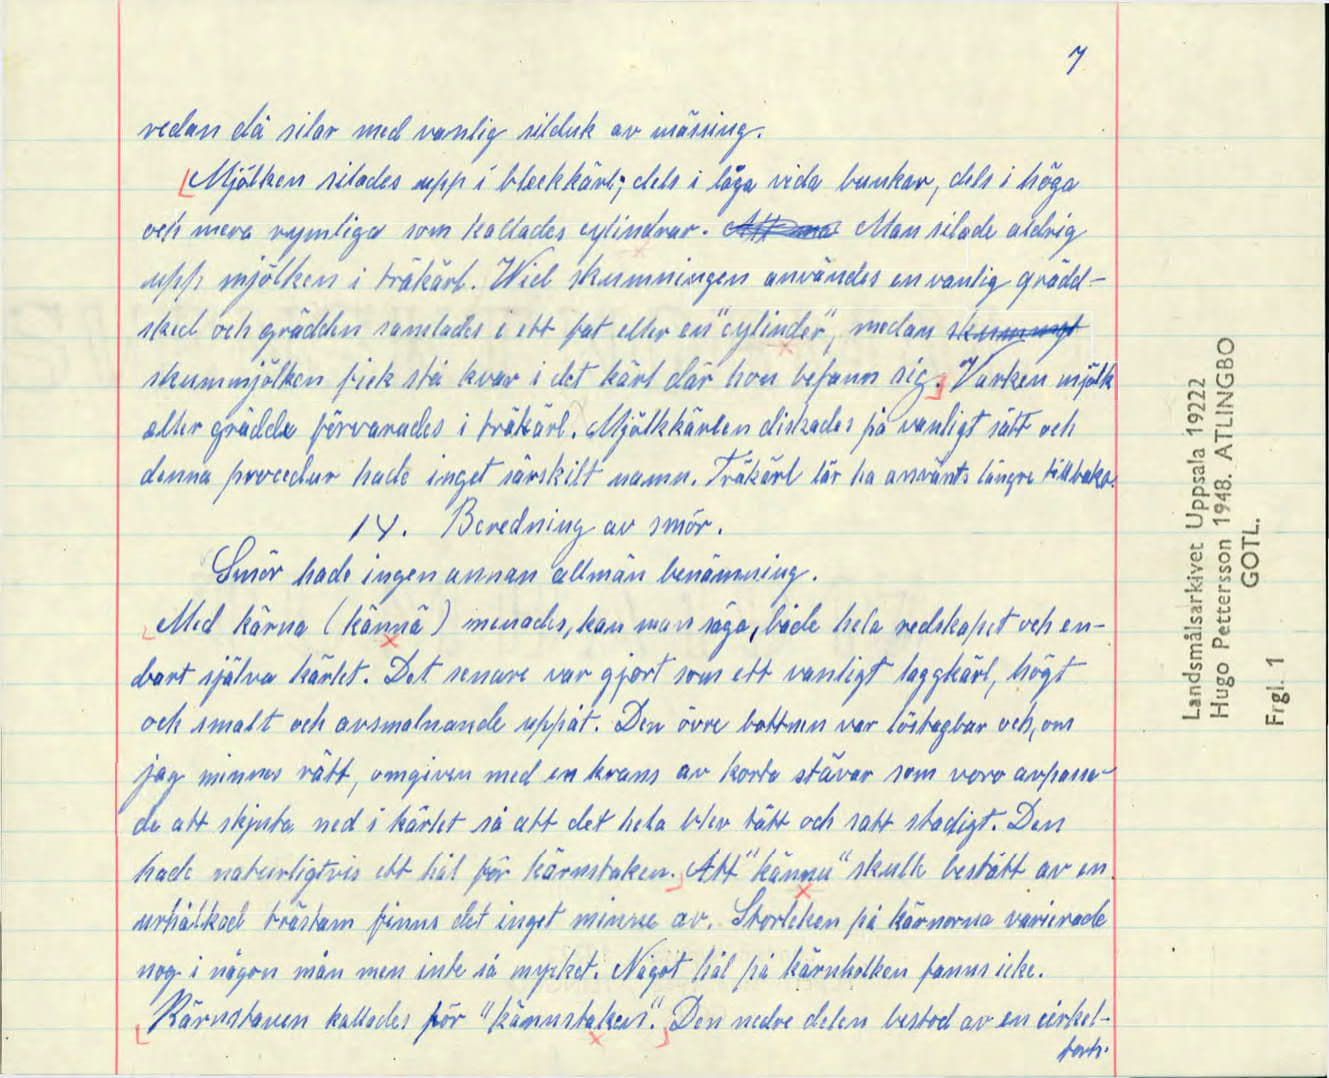 7
redan då silar med vanlig silduk av mässing.
Mjölken silades upp i bleckkärl; dels i låga vida bunkar, dels i höga
och mera rymliga som kallades cylindrar. Man silade aldrig
upp mjölken i träkärl. Wid skumningen användes en vanlig grädd-
sked och grädden samlades i ett fat eller en "cylinder", medan
skummjölken fick stå kvar i det kärl där hon befann sig. Varken mjölk
eller grädde förvarades i träkärl. Mjölkkärlen diskades på vanligt sätt och
denna procedur hade inget särskilt namn. Träkärl lär ha använts längre tillbaka.
14. Beredning av smör.
Smör hade ingen annan allmän benämning.
Med kärna (kännä) menades, kan man säga, både hela redskapet och en-
bart själva kärlet. Det senare var gjort som ett vanligt laggkärl, högt
och smalt och avsmalnande uppåt. Den övre bottnen var löstagbar och, om
jag minnes rätt, omgiven med en krans av korta stävar som voro avpassa-
de att skjuta ned i kärlet så att det hela blev tätt och satt stadigt. Den
hade naturligtvis ett hål för kärnstaken. Att "kännu" skulle bestått av en
urhålkad trästam finns det inget minne av. Storleken på kärnorna varierade
nog i någon mån men inte så mycket. Något hål på kärnholken fanns icke.
Kärnstaven kallades för "kännstaken". Den nedre delen bestod av en cirkel-
Landsmålsarkivet Uppsala 19222
Hugo Pettersson 1948. ATLINGBO
GOTL.
Frgl. 1